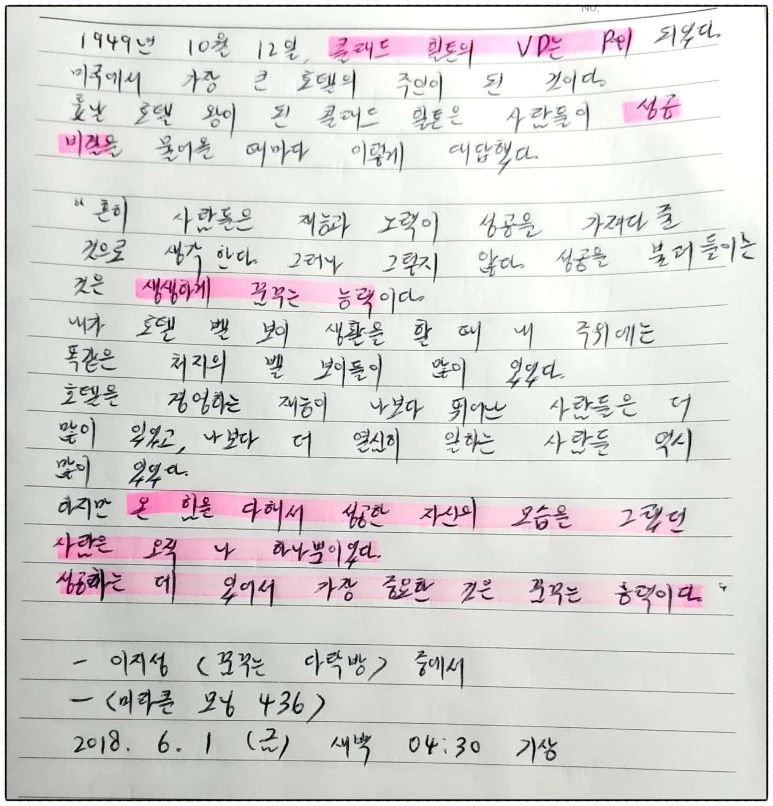 No.
1949년 10월 12일, 콘래드 힐튼의 VD는 R이 되었다.
미국에서 가장 큰 호텔의 주인이 된 것이다.
훗날 호텔 왕이 된 콘래드 힐튼은 사람들이 성공
비결을 물어올 때마다 이렇게 대답했다.
"흔히 사람들은 재능과 노력이 성공을 가져다 줄
것으로 생각 한다. 그러나 그렇지 않다. 성공을 불러 들이는
것은 생생하게 꿈꾸는 능력이다.
내가 호텔 벨 보이 생활을 할 때 내 주위에는
똑같은 처지의 벨 보이들이 많이 있었다.
호텔을 경영하는 재능이 나보다 뛰어난 사람들은 더
많이 있었고, 나보다 더 열심히 일하는 사람들 역시
많이 있었다.
하지만 온 힘을 다해서 성공한 자신의 모습을 그렸던
사람은 오직 나 하나뿐이었다.
성공하는 데 있어서 가장 중요한 것은 꿈꾸는 능력이다."
- 이지성 <꿈꾸는 다락방> 중에서
- <미라클 모닝 436>
2018. 6. 1 (금) 새벽 04:30 기상